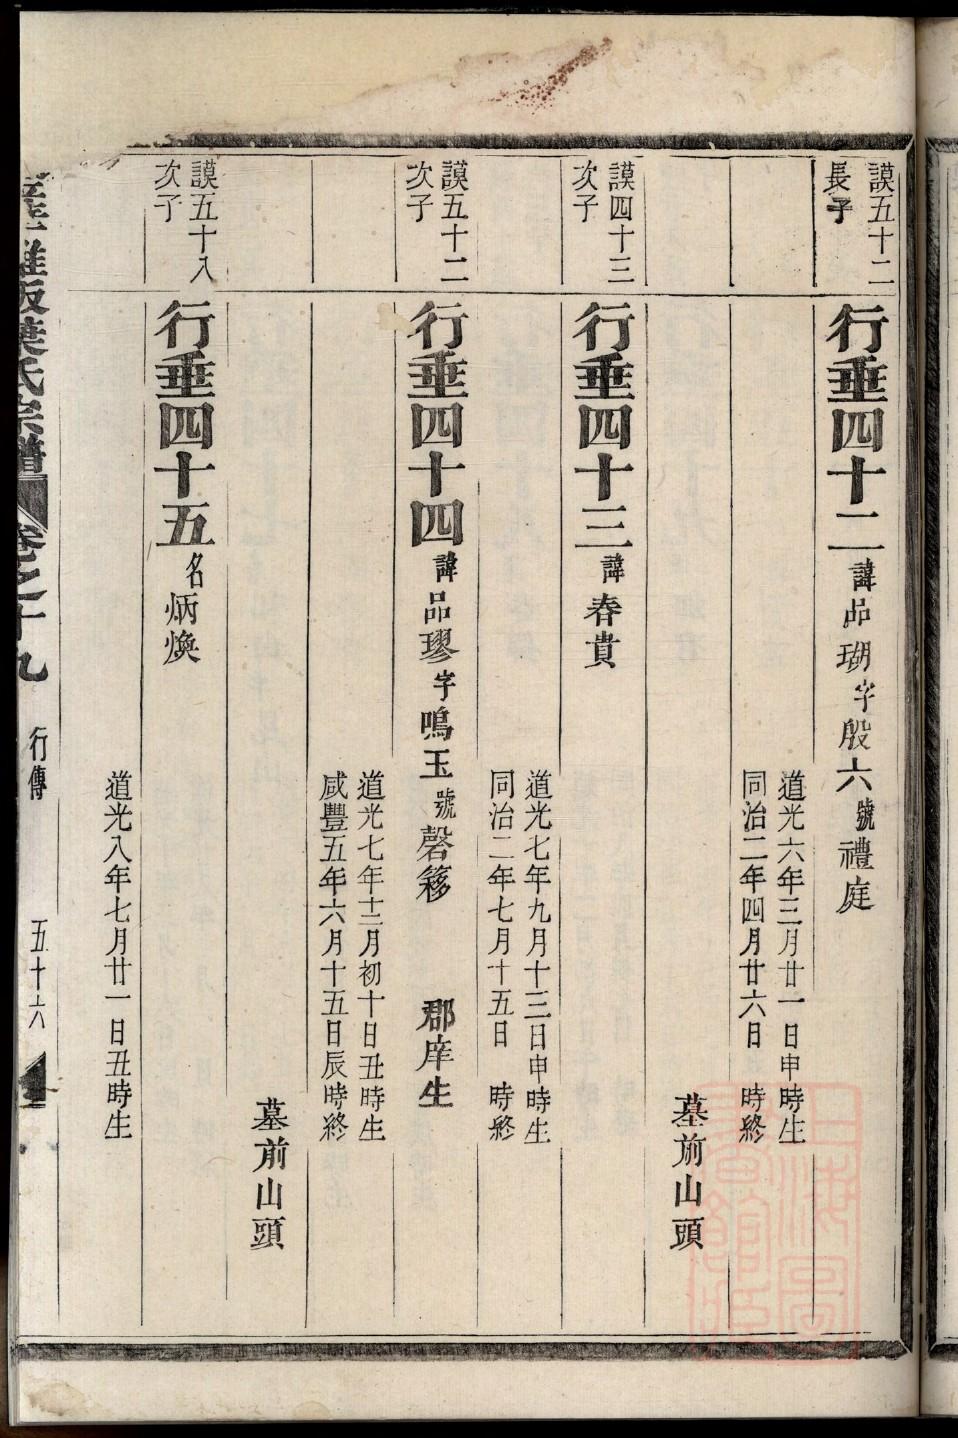 謨五十二
長子
行垂四十二諱品瑚字殷六號禮庭
道光六年三月廿一日申時生
同治二年四月廿六日 時終
墓前山頭
謨四十三
次子
行垂四十三諱春貴
道光七年九月十三日申時生
同治二年七月十五日 時終
謨五十二
次子
行垂四十四諱品璆字鳴玉號磬簃 郡庠生
道光七年十二月初十日丑時生
咸豐五年六月十五日辰時終
墓前山頭
謨五十八
次子
行垂四十五名炳煥
道光八年七月廿一日丑時生
葉氏宗譜 卷之十九 行傳 五十六